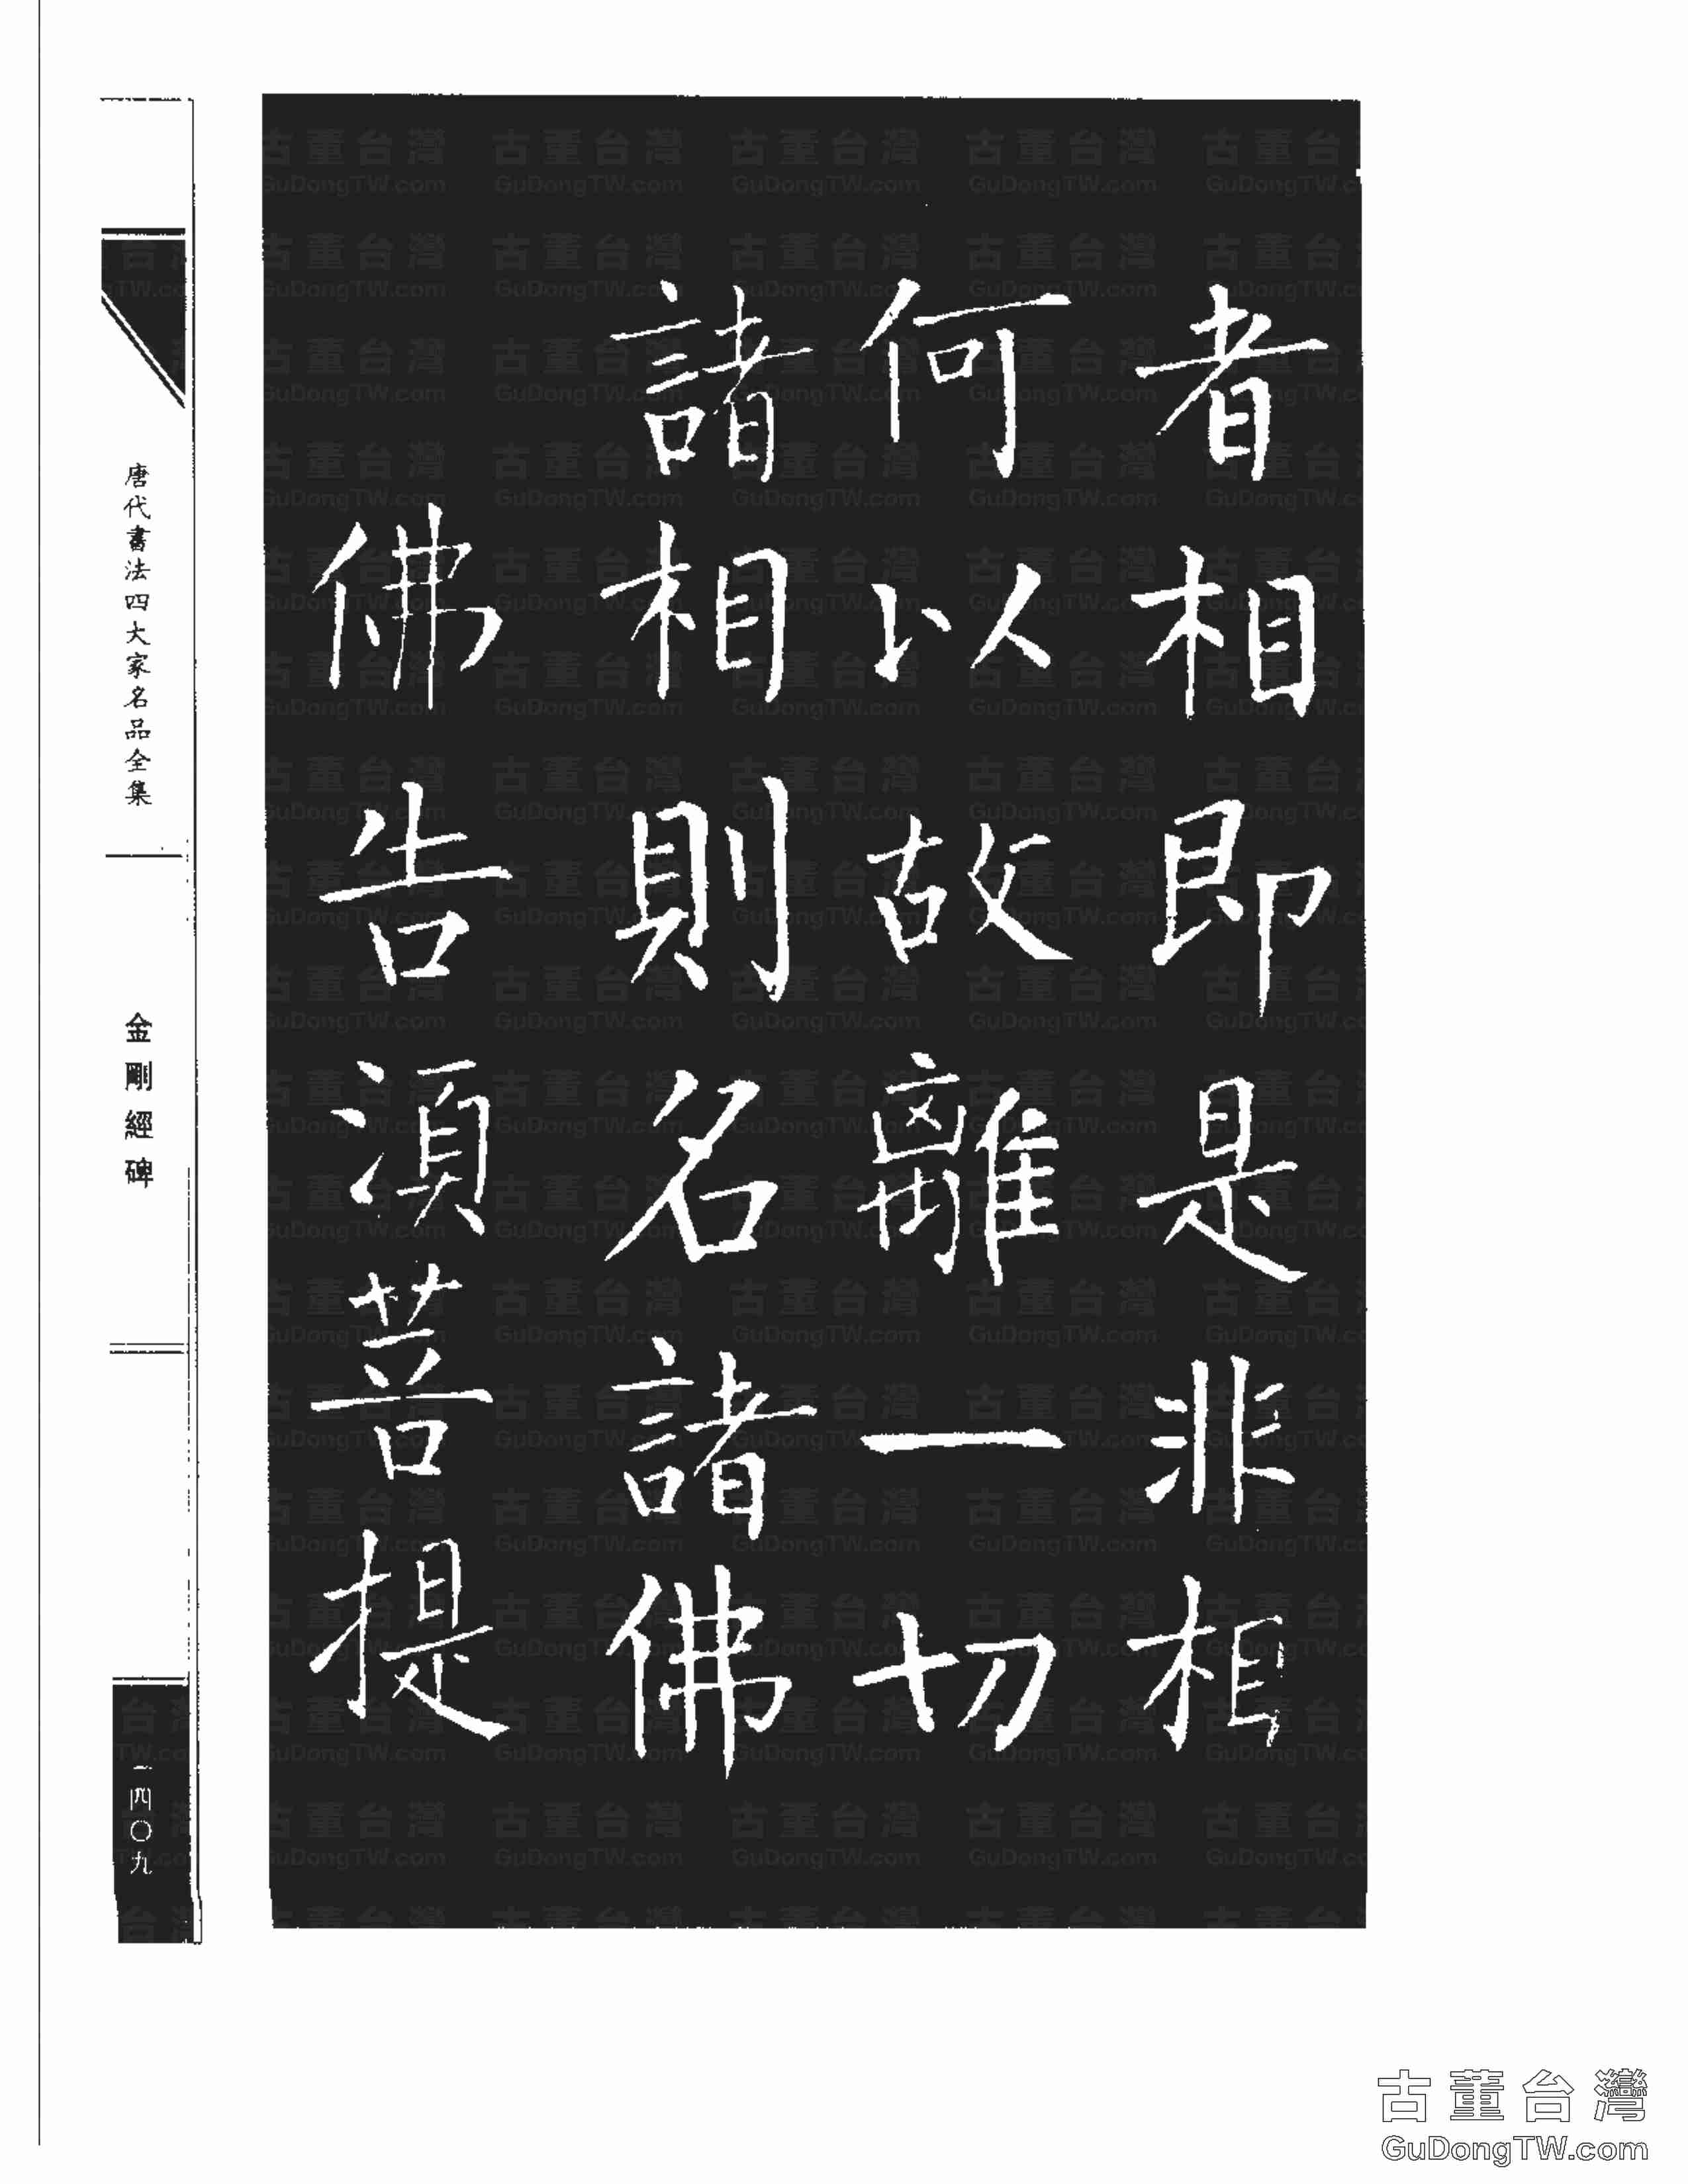 者相即是非相
何以故離一切
諸相則名諸佛
佛告須菩提
唐代書法四大家名品全集
金剛經碑
一四〇九
古董台灣
GuDongTW.com